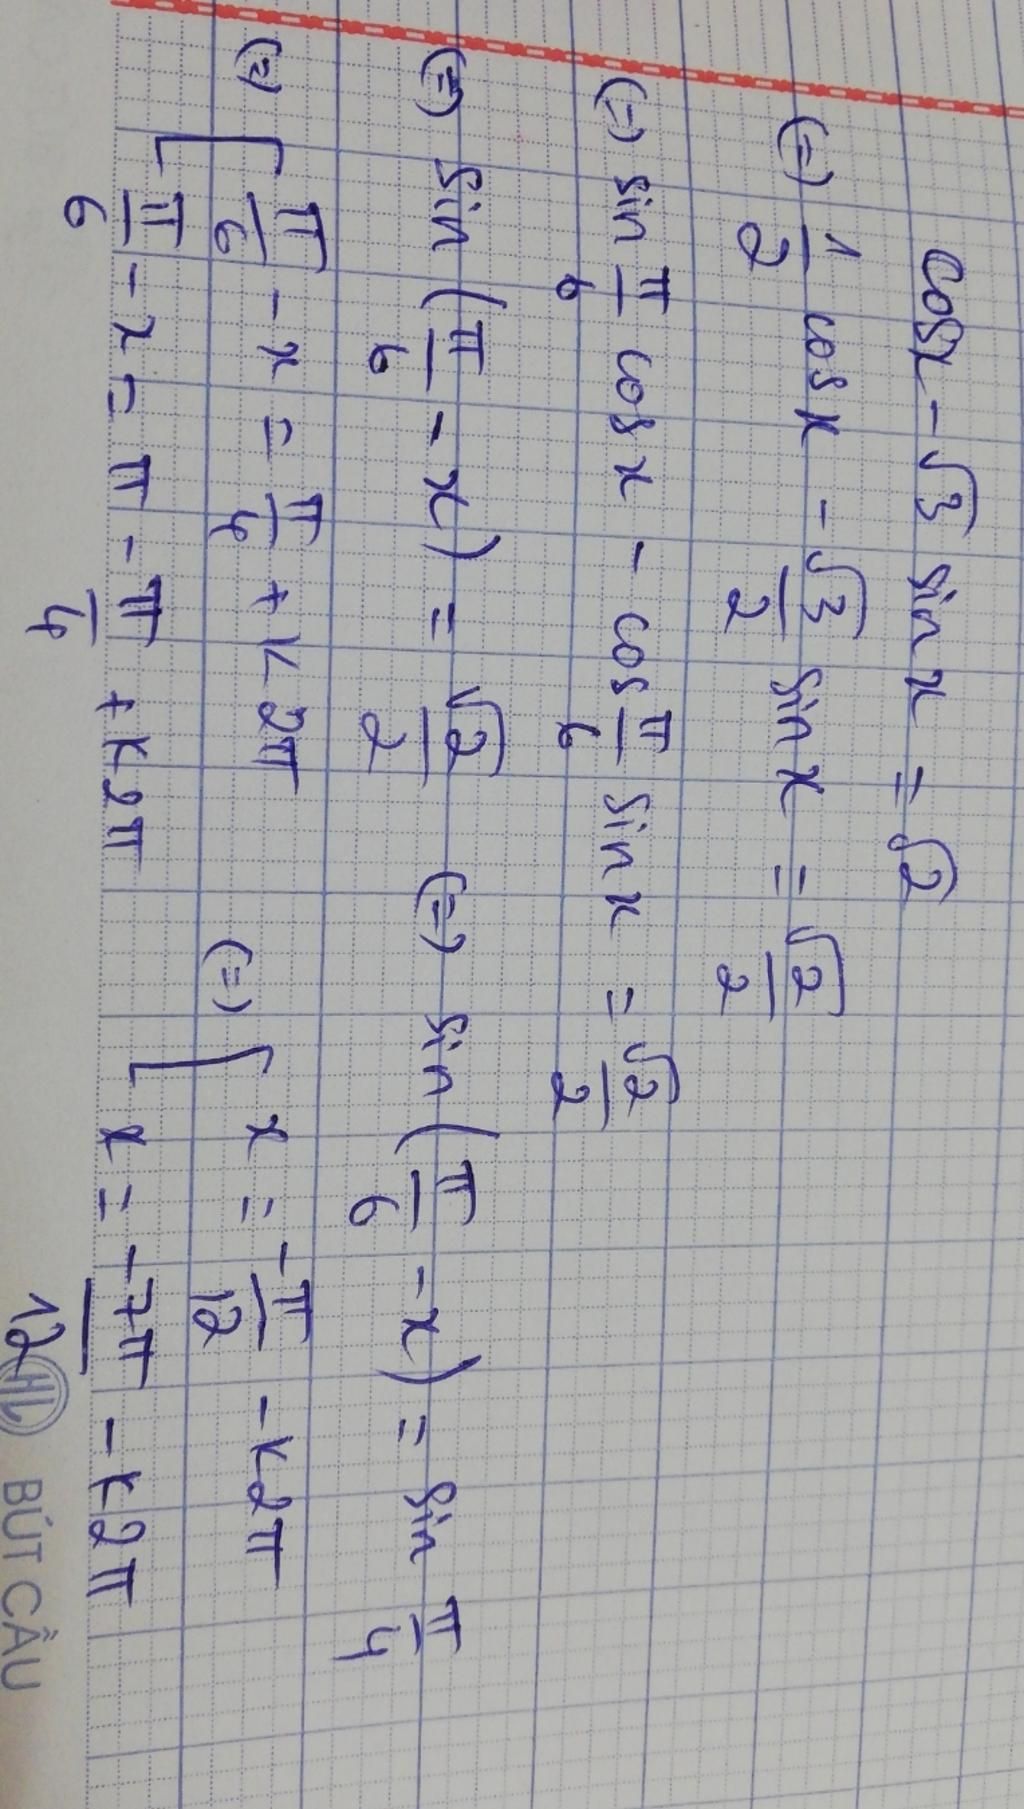 cosx - √3 sinx = √2
(=) 1/2 cosx - √3/2 sinx = √2/2
(=) sin π/6 cosx - cos π/6 sinx = √2/2
(=) sin (π/6 - x) = √2/2 (=) sin (π/6 - x) = sin π/4
(=) [ π/6 - x = π/4 + k2π (=) [ x = -π/12 - k2π
π/6 - x = π - π/4 + k2π x = -7π/12 - k2π
HL BÚT CÂU